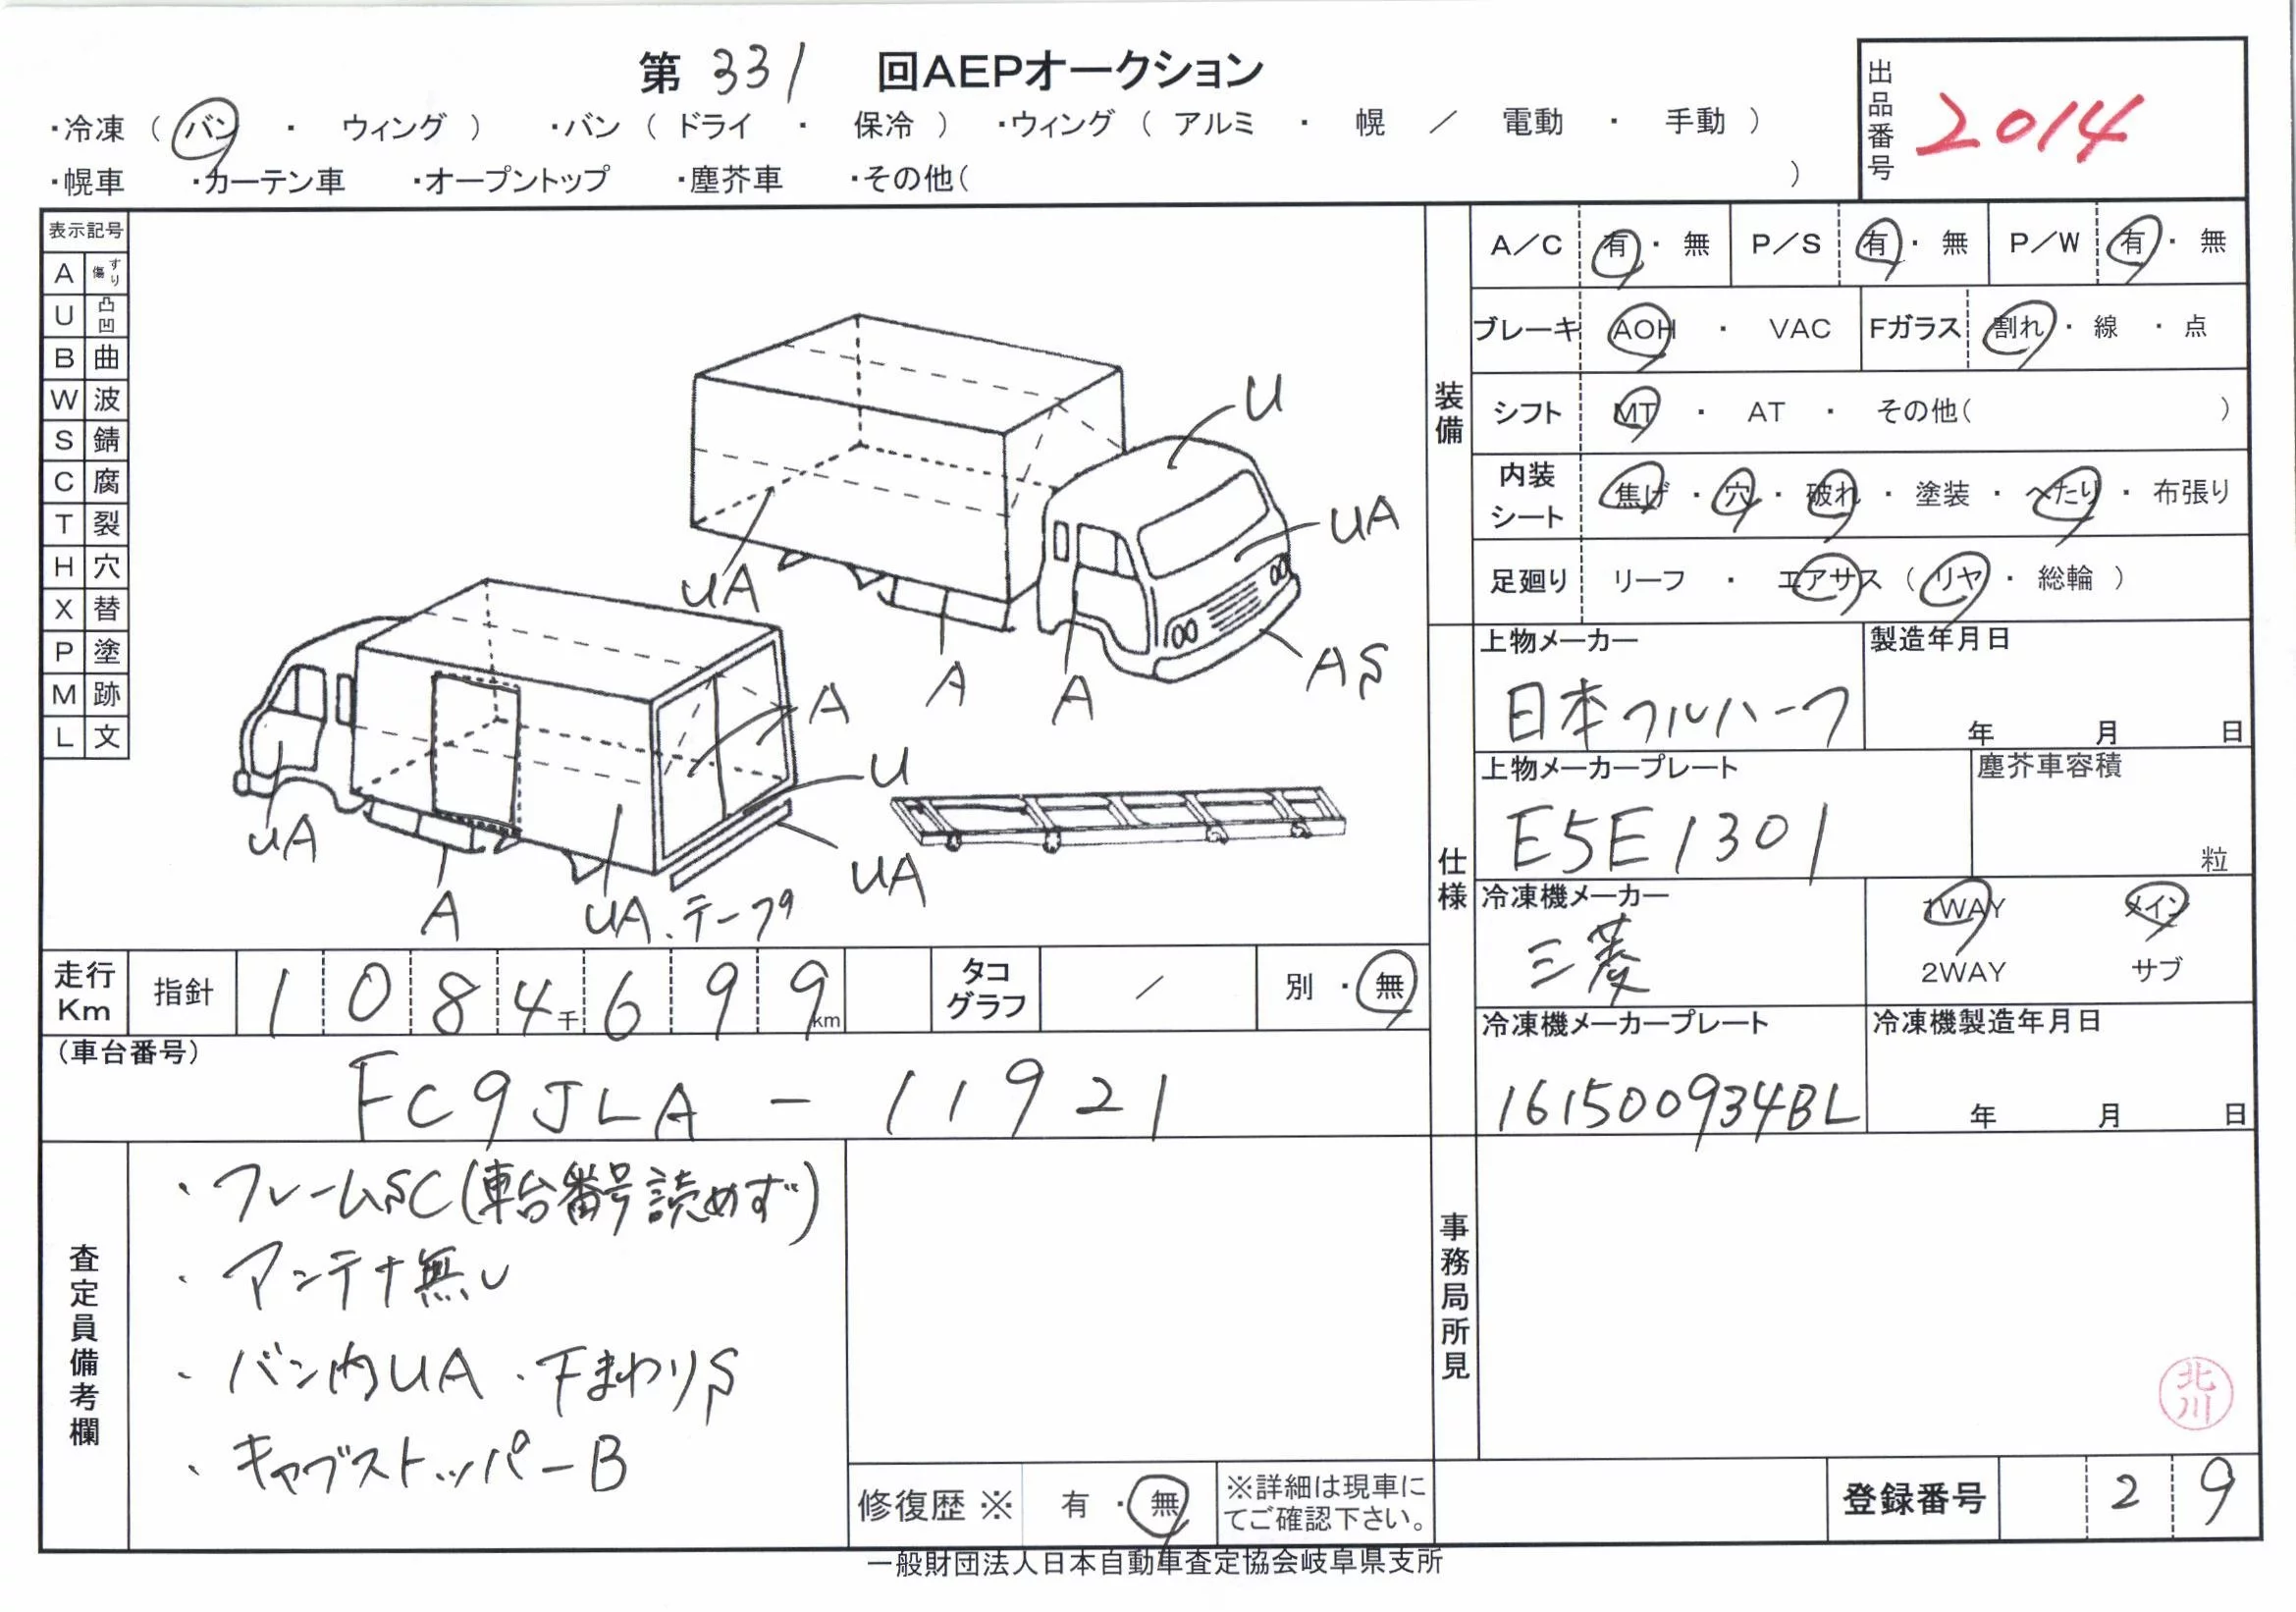 第 331 回AEPオークション
出品番号 2014
・冷凍 ( バン ・ ウィング ) ・バン ( ドライ ・ 保冷 ) ・ウィング ( アルミ ・ 幌 / 電動 ・ 手動 )
・幌車 ・カーテン車 ・オープントップ ・塵芥車 ・その他( )
表示記号
A すり傷
U 凸凹
B 曲
W 波
S 錆
C 腐
T 裂
H 穴
X 替
P 塗
M 跡
L 文
U
UA
UA
A
A
AS
A
U
UA
UA
A
UA.テープ
装備
A/C 有・無 P/S 有・無 P/W 有・無
ブレーキ AOH ・ VAC Fガラス 割れ・線・点
シフト MT ・ AT ・ その他( )
内装シート 焦げ・穴・破れ・塗装・へたり・布張り
足廻り リーフ ・ エアサス ( リヤ・総輪 )
仕様
上物メーカー 製造年月日
日本フルハーフ 年 月 日
上物メーカープレート 塵芥車容積
E5E1301 粒
冷凍機メーカー 1WAY メイン
三菱 2WAY サブ
冷凍機メーカープレート 冷凍機製造年月日
161500934BL 年 月 日
走行Km 指針 1 0 8 4千 6 9 9km タコグラフ / 別・無
(車台番号)
FC9JLA-11921
査定員備考欄
・フレームSC(車台番号読めず)
・アンテナ無し
・バン内UA・下まわりS
・キャブストッパーB
修復歴 ※ 有・無 ※詳細は現車にてご確認下さい。
事務局所見
北川
登録番号 2 9
一般財団法人日本自動車査定協会岐阜県支所